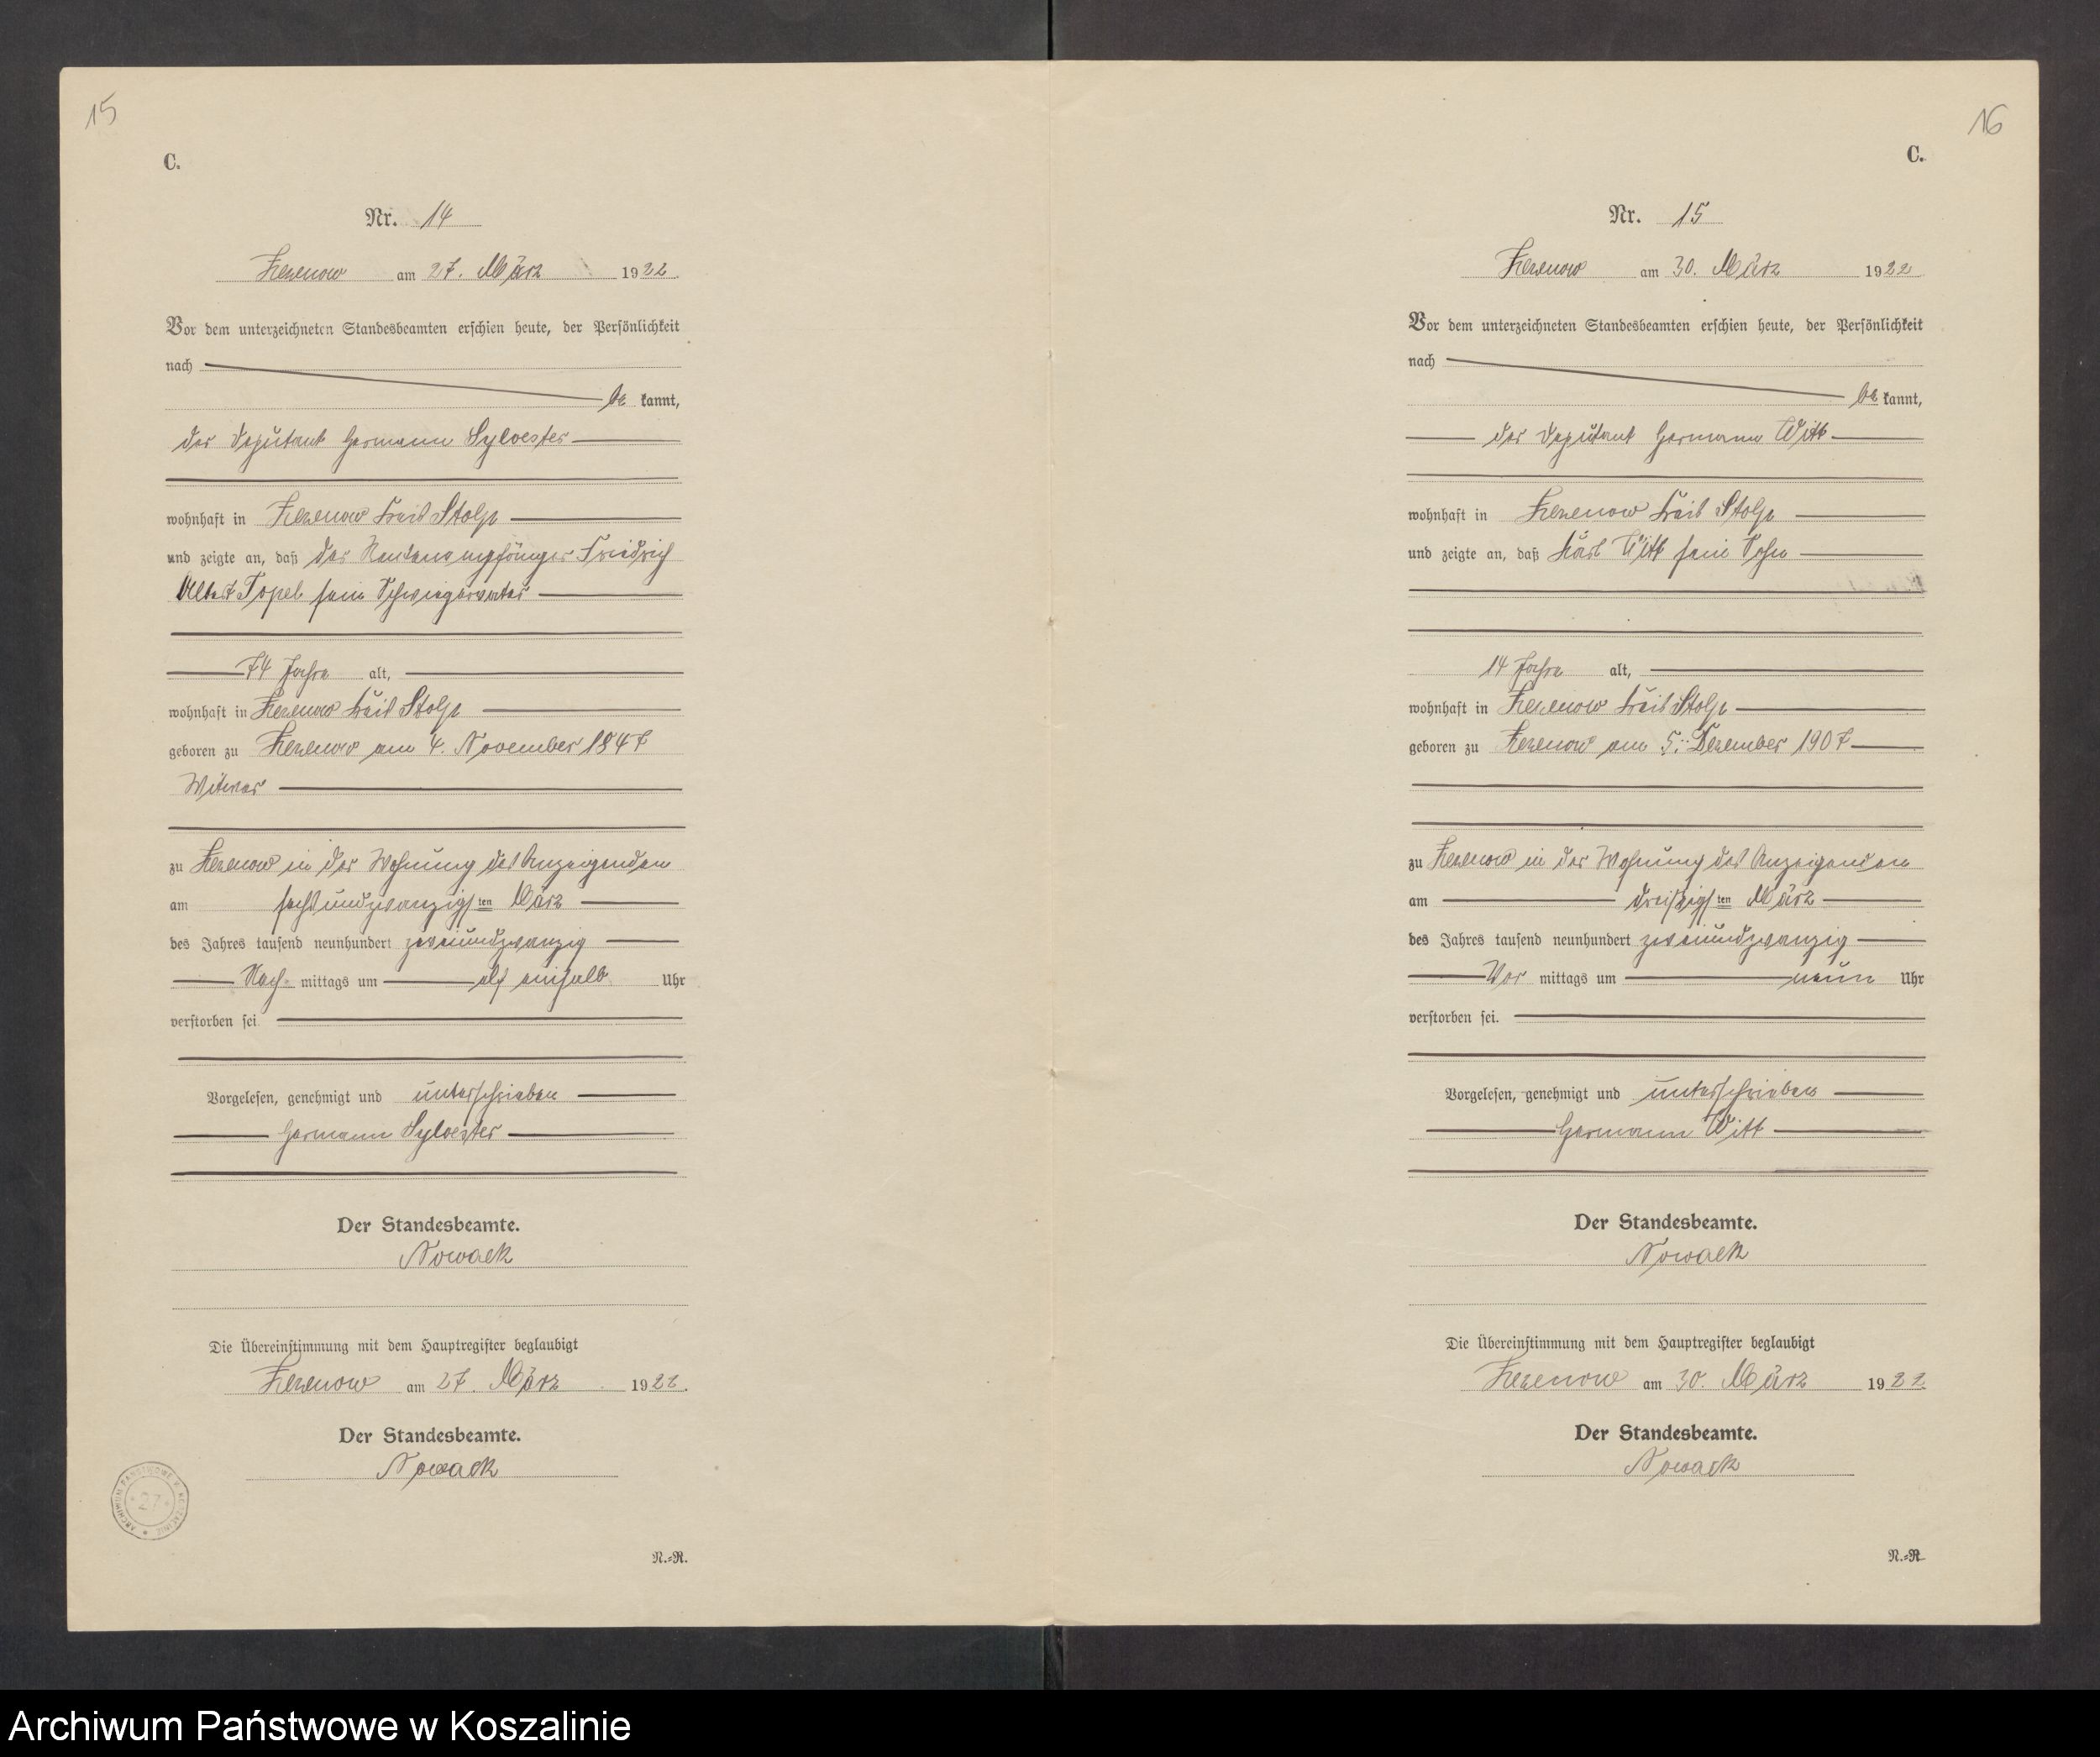 15
C.
Nr. 14
Zezenow am 27. März 1922
Vor dem unterzeichneten Standesbeamten erschien heute, der Persönlichkeit
nach
be kannt,
der Deputant Hermann Sylvester
wohnhaft in Zezenow Kreis Stolp
und zeigte an, daß der Rentenempfänger Friedrich
Albert Topel sein Schwiegervater
74 Jahre alt,
wohnhaft in Zezenow Kreis Stolp
geboren zu Zezenow am 4. November 1847
Witwer
zu Zezenow in der Wohnung des Anzeigenden
am sechsundzwanzigsten März
des Jahres tausend neunhundert zweiundzwanzig
Nach mittags um elf einhalb Uhr
verstorben sei
Vorgelesen, genehmigt und unterschrieben
Hermann Sylvester
Der Standesbeamte.
Nowack
Die Übereinstimmung mit dem Hauptregister beglaubigt
Zezenow am 27. März 1922.
Der Standesbeamte.
Nowack
ARCHIWUM PAŃSTWOWE W KOSZALINIE
27
N.=R.
16
C.
Nr. 15
Zezenow am 30. März 1922
Vor dem unterzeichneten Standesbeamten erschien heute, der Persönlichkeit
nach
be kannt,
der Deputant Hermann Witt
wohnhaft in Zezenow Kreis Stolp
und zeigte an, daß Karl Witt sein Sohn
14 Jahre alt,
wohnhaft in Zezenow Kreis Stolp
geboren zu Zezenow am 5. Dezember 1907
zu Zezenow in der Wohnung des Anzeigenden
am dreißigsten März
des Jahres tausend neunhundert zweiundzwanzig
Vor mittags um neun Uhr
verstorben sei.
Vorgelesen, genehmigt und unterschrieben
Hermann Witt
Der Standesbeamte.
Nowack
Die Übereinstimmung mit dem Hauptregister beglaubigt
Zezenow am 30. März 1922
Der Standesbeamte.
Nowack
N.=R.
Archiwum Państwowe w Koszalinie